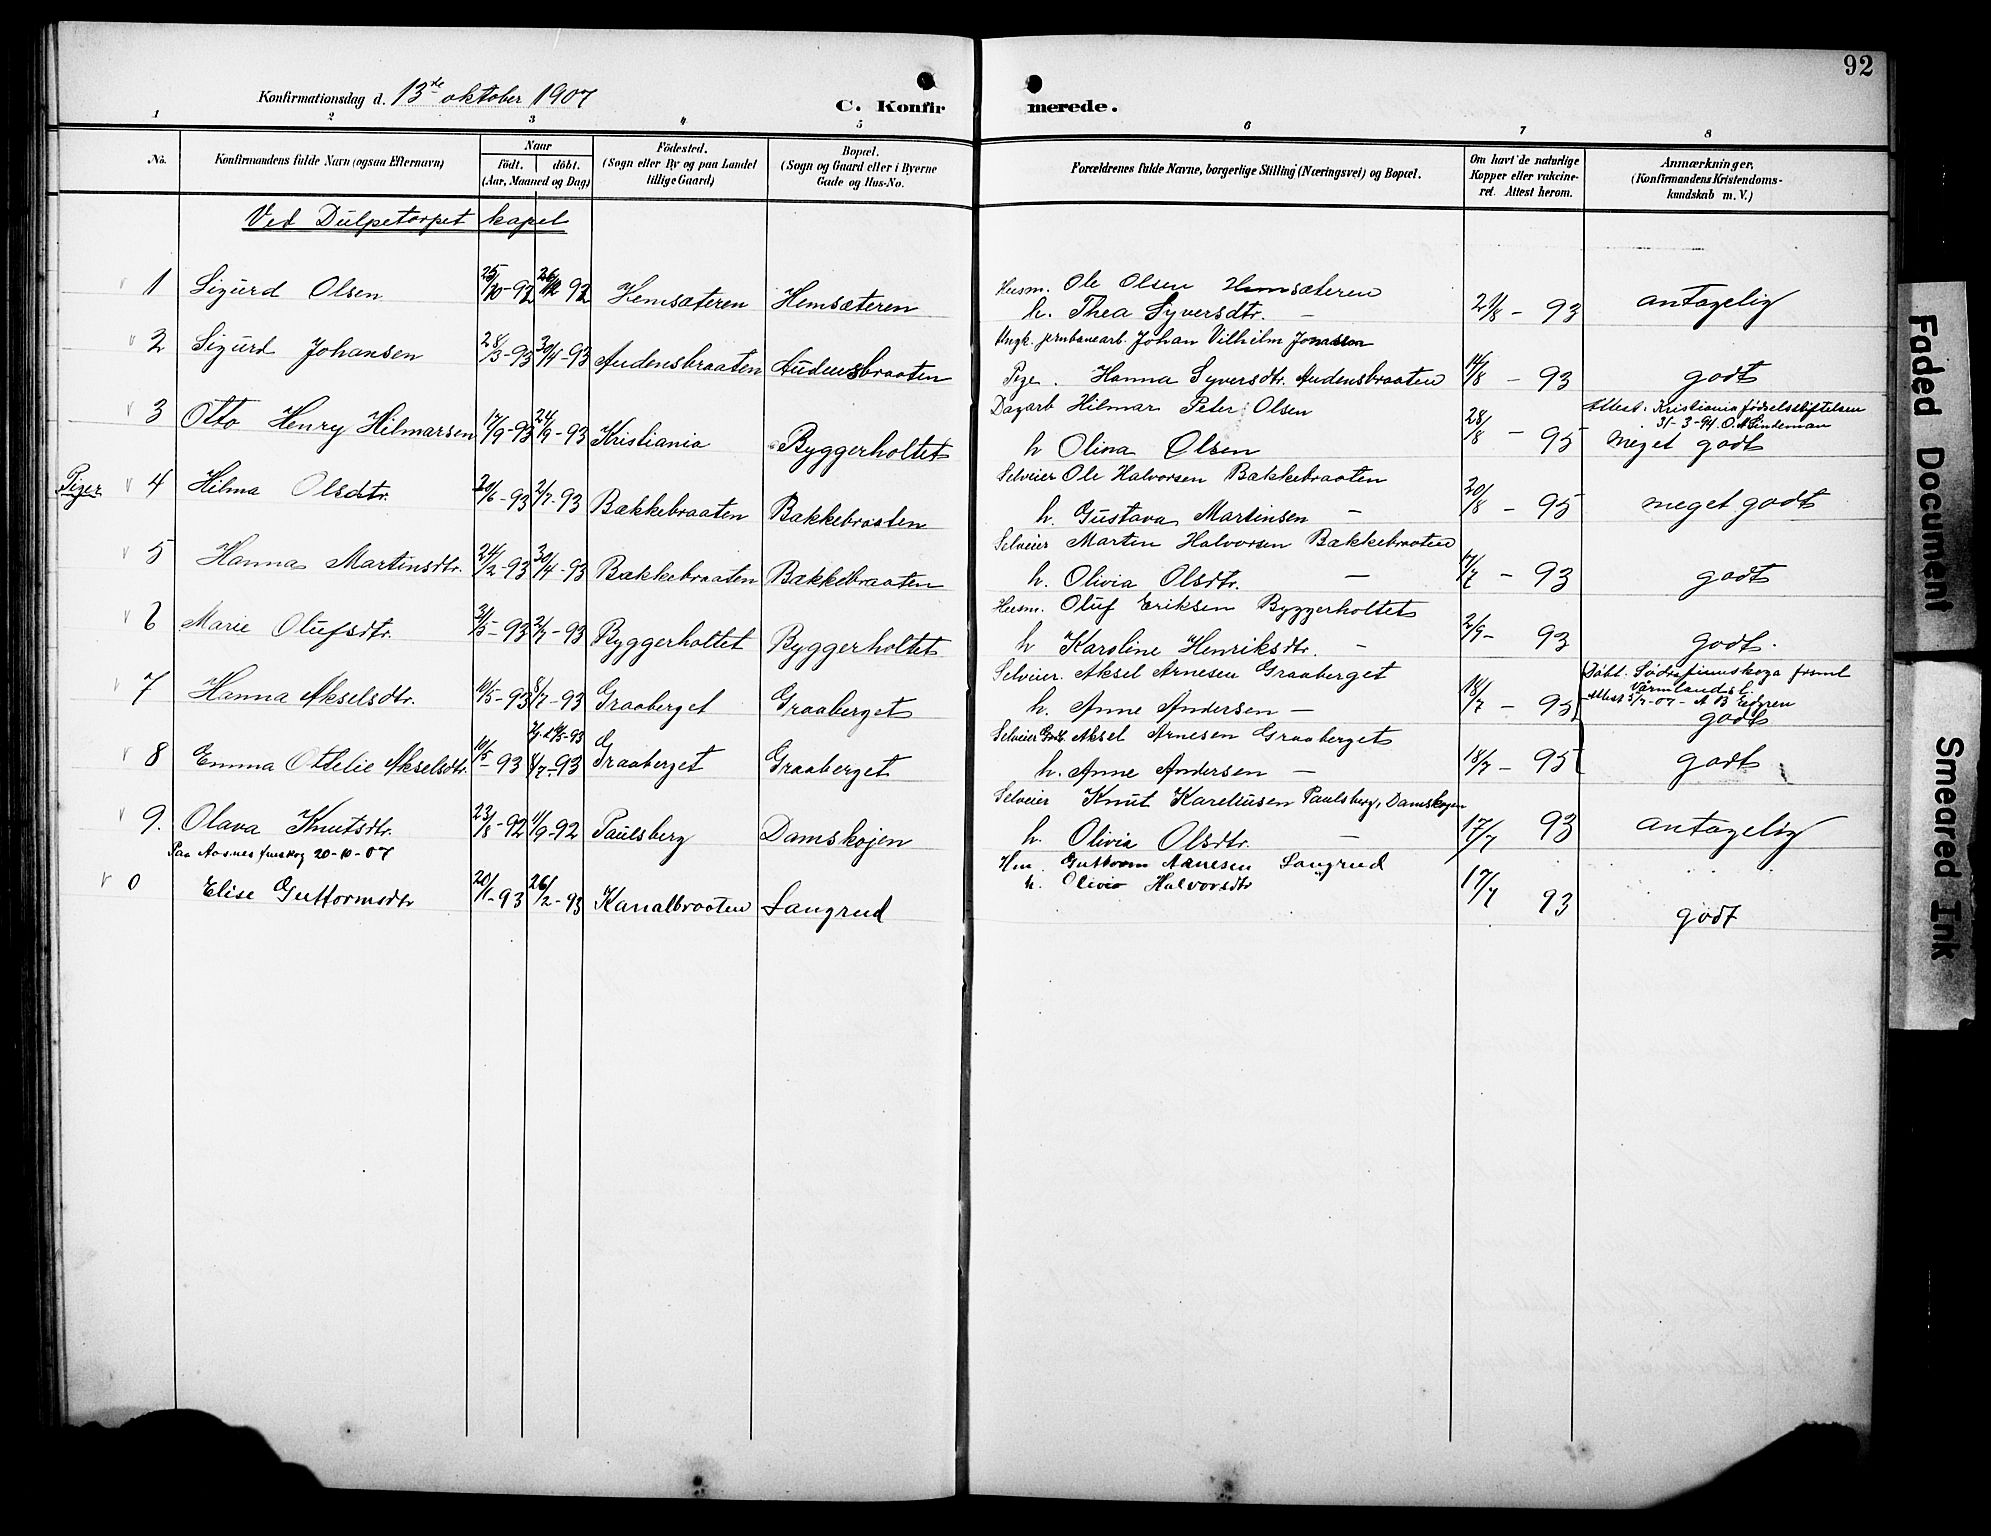 92
Konfirmationsdag d. 13de oktober 1907
C. Konfirmerede.
1 2 3 4 5 6 7 8
No. Konfirmandens fulde Navn (ogsaa Efternavn) Naar Födt. döbt. (Aar, Maaned og Dag) Födested. (Sogn eller By og paa Landet tillige Gaard) Bopæl. (Sogn og Gaard eller i Byerne Gade og Hus-No. Forældrenes fulde Navne, borgerlige Stilling (Næringsvei) og Bopæl. Om havt de naturlige Kopper eller vakcineret. Attest herom. Anmærkninger. (Konfirmandens Kristendomskundskab m. V.)
Ved Dulpetorpet kapel
1 Sigurd Olsen 25/10-92 26/12 92 Hemsæteren Hemsæteren Husm. Ole Olsen Hemsæteren
h. Thea Syversdtr. - 21/8 - 93 antagelig
2 Sigurd Johansen 28/3-93 30/4-93 Audensbraaten Audensbraaten Ungk. jernbanearb. Johan Vilhelm Jonassen
Pige. Hanna Syversdtr. Audensbraaten 14/8 - 93 godt
3 Otto Henry Hilmarsen 17/9-93 24/9-93 Kristiania Byggerholtet Dagarb Hilmar Peter Olsen
h Olina Olsen 28/8 - 95 Attest. Kristiania fødselsstiftelsen
31-3-94 O. A Lindeman
meget godt
Piger 4 Hilma Olsdtr. 20/6-93 2/7-93 Bakkebraaten Bakkebraaten Selveier Ole Halvorsen Bakkebraaten
h. Gustava Martinsen - 20/8 - 95 meget godt
5 Hanna Martinsdtr. 24/2-93 30/4-93 Bakkebraaten Bakkebraaten Selveier Martin Halvorsen Bakkebraaten
h. Olivia Olsdtr. - 17/7 - 93 godt
6 Marie Olufsdtr. 31/5-93 2/7-93 Byggerholtet Byggerholtet Husm. Oluf Eriksen Byggerholtet
h Karoline Henriksdtr. - 2/9- 93 godt.
7 Hanna Akselsdtr. 10/5-93 8/7-93 Graaberget Graaberget Selveier. Aksel Arnesen Graaberget
h. Anne Andersen - 18/7 - 95 Döbt. Södra finnskoga forsml
Värmlands l.
Attest 5/7-07- A B Elfgren
godt
8 Emma Ottelie Akselsdtr. 10/5-93 8/7-93 Graaberget Graaberget Selveier Grdb. Aksel Arnesen Graaberget
h. Anne Andersen - 18/7 - 95 godt
9. Olava Knutsdtr. 23/8-92 11/9-92 Paulsberg Damskojen Selveier Knut Kareliusen Paulsberg, Damskojen
h. Olivia Olsdtr. - 17/7 93 antagelig
Paa Aasnes finskog 20-10-07
0 Elise Guttormsdtr 20/1-93 26/2-93 Kanalbraaten Langrud Hm. Guttorm Arnesen Langrud
h. Olivia Halvorsdtr 17/7 93 godt
Faded Document
Smeared Ink